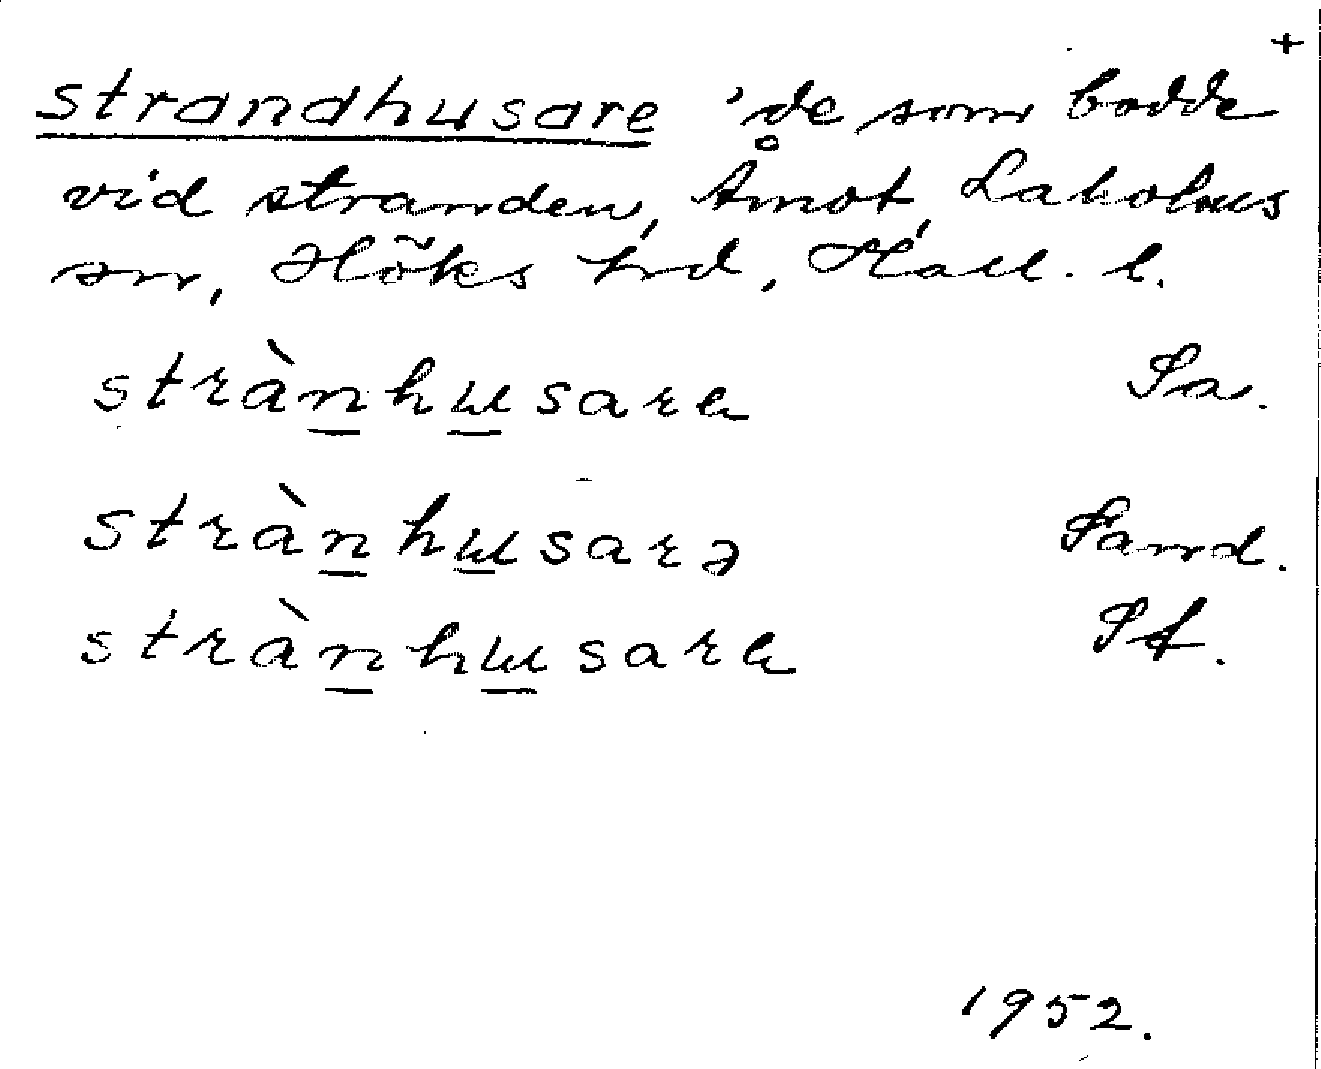 +
strandhusare 'de som bodde
vid stranden, Åmot, Laholms
sn, Höks hd, Hall. l.
strànhusara Sa.
strànhusarə Sand.
strànhusara St.
1952.